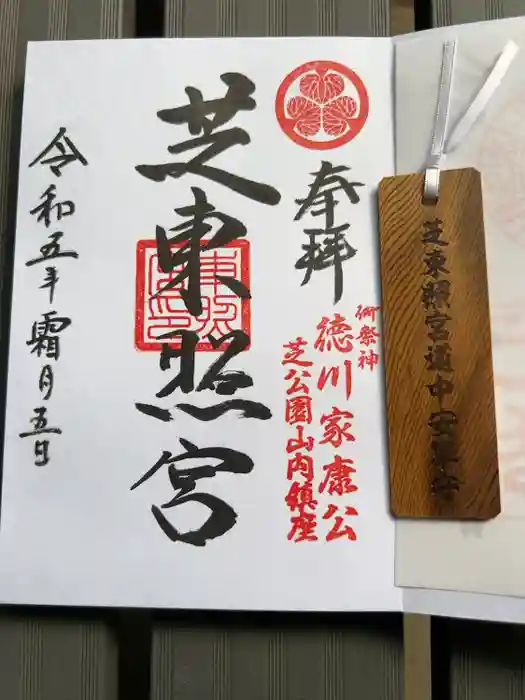 奉拝
御祭神
徳川家康公
芝公園山内鎮座
芝東照宮
令和五年霜月五日
芝東照宮道中安全守